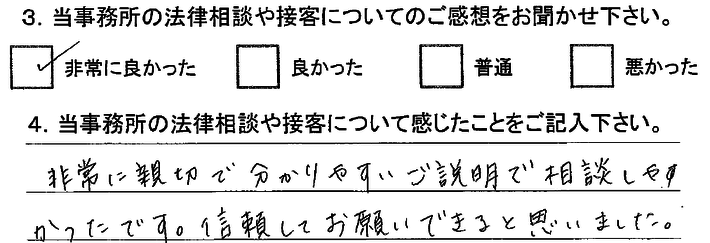 3. 当事務所の法律相談や接客についてのご感想をお聞かせ下さい。
非常に良かった 良かった 普通 悪かった
4. 当事務所の法律相談や接客について感じたことをご記入下さい。
非常に親切で分かりやすいご説明で相談しやす
かったです。信頼してお願いできると思いました。